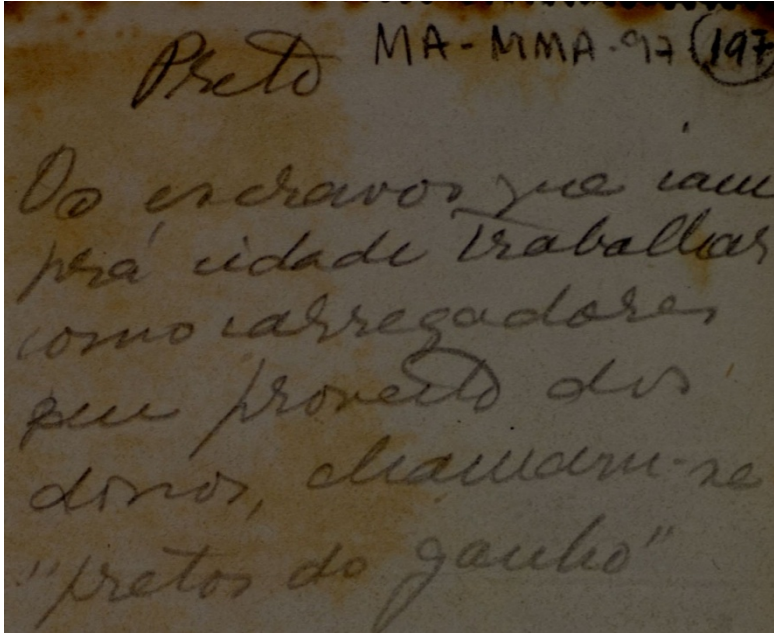 Preto MA-MMA-97 (197
Os escravos que iam
prá cidade trabalhar
como carregadores
em proveito dos
donos, chamam-se
"pretos do ganho"